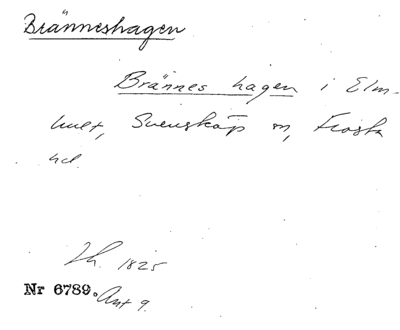 Bränneshagen
Brännes hagen i Elm-
hult, Svensköp sn, Frosta
hd.
Th. 1825
Nr 6789. Ant 9.